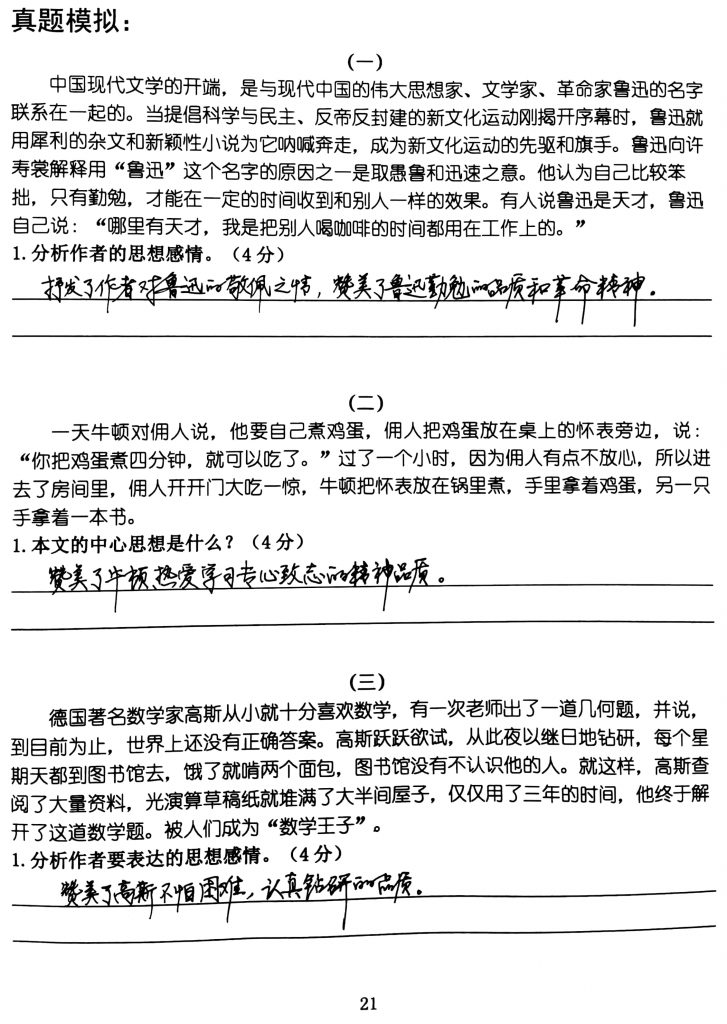 真题模拟：
(一)
中国现代文学的开端，是与现代中国的伟大思想家、文学家、革命家鲁迅的名字
联系在一起的。当提倡科学与民主、反帝反封建的新文化运动刚揭开序幕时，鲁迅就
用犀利的杂文和新颖性小说为它呐喊奔走，成为新文化运动的先驱和旗手。鲁迅向许
寿裳解释用“鲁迅”这个名字的原因之一是取愚鲁和迅速之意。他认为自己比较笨
拙，只有勤勉，才能在一定的时间收到和别人一样的效果。有人说鲁迅是天才，鲁迅
自己说：“哪里有天才，我是把别人喝咖啡的时间都用在工作上的。”
1.分析作者的思想感情。（4分）
抒发了作者对鲁迅的敬佩之情，赞美了鲁迅勤勉的品质和革命精神。
(二)
一天牛顿对佣人说，他要自己煮鸡蛋，佣人把鸡蛋放在桌上的怀表旁边，说：
“你把鸡蛋煮四分钟，就可以吃了。”过了一个小时，因为佣人有点不放心，所以进
去了房间里，佣人开开门大吃一惊，牛顿把怀表放在锅里煮，手里拿着鸡蛋，另一只
手拿着一本书。
1.本文的中心思想是什么？（4分）
赞美了牛顿热爱学习专心致志的精神品质。
(三)
德国著名数学家高斯从小就十分喜欢数学，有一次老师出了一道几何题，并说，
到目前为止，世界上还没有正确答案。高斯跃跃欲试，从此夜以继日地钻研，每个星
期天都到图书馆去，饿了就啃两个面包，图书馆没有不认识他的人。就这样，高斯查
阅了大量资料，光演算草稿纸就堆满了大半间屋子，仅仅用了三年的时间，他终于解
开了这道数学题。被人们成为“数学王子”。
1.分析作者要表达的思想感情。（4分）
赞美了高斯不怕困难，认真钻研的品质。
21